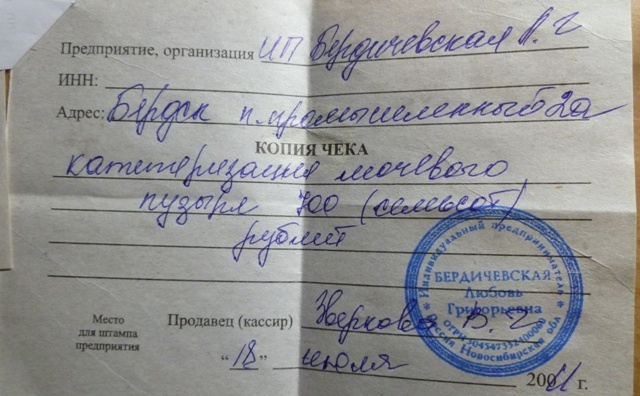 Предприятие, организация ИП Бердичевская Л. Г
ИНН:
Адрес: Бердск п. промышленный 2а
КОПИЯ ЧЕКА
катетеризация мочевого
пузыря 700 (семьсот)
рублей
Индивидуальный предприниматель
БЕРДИЧЕВСКАЯ
Любовь
Григорьевна
Россия Новосибирская обл
Место
для штампа
предприятия
Продавец (кассир) Зверкова В. Г
"18" июля 200 г.